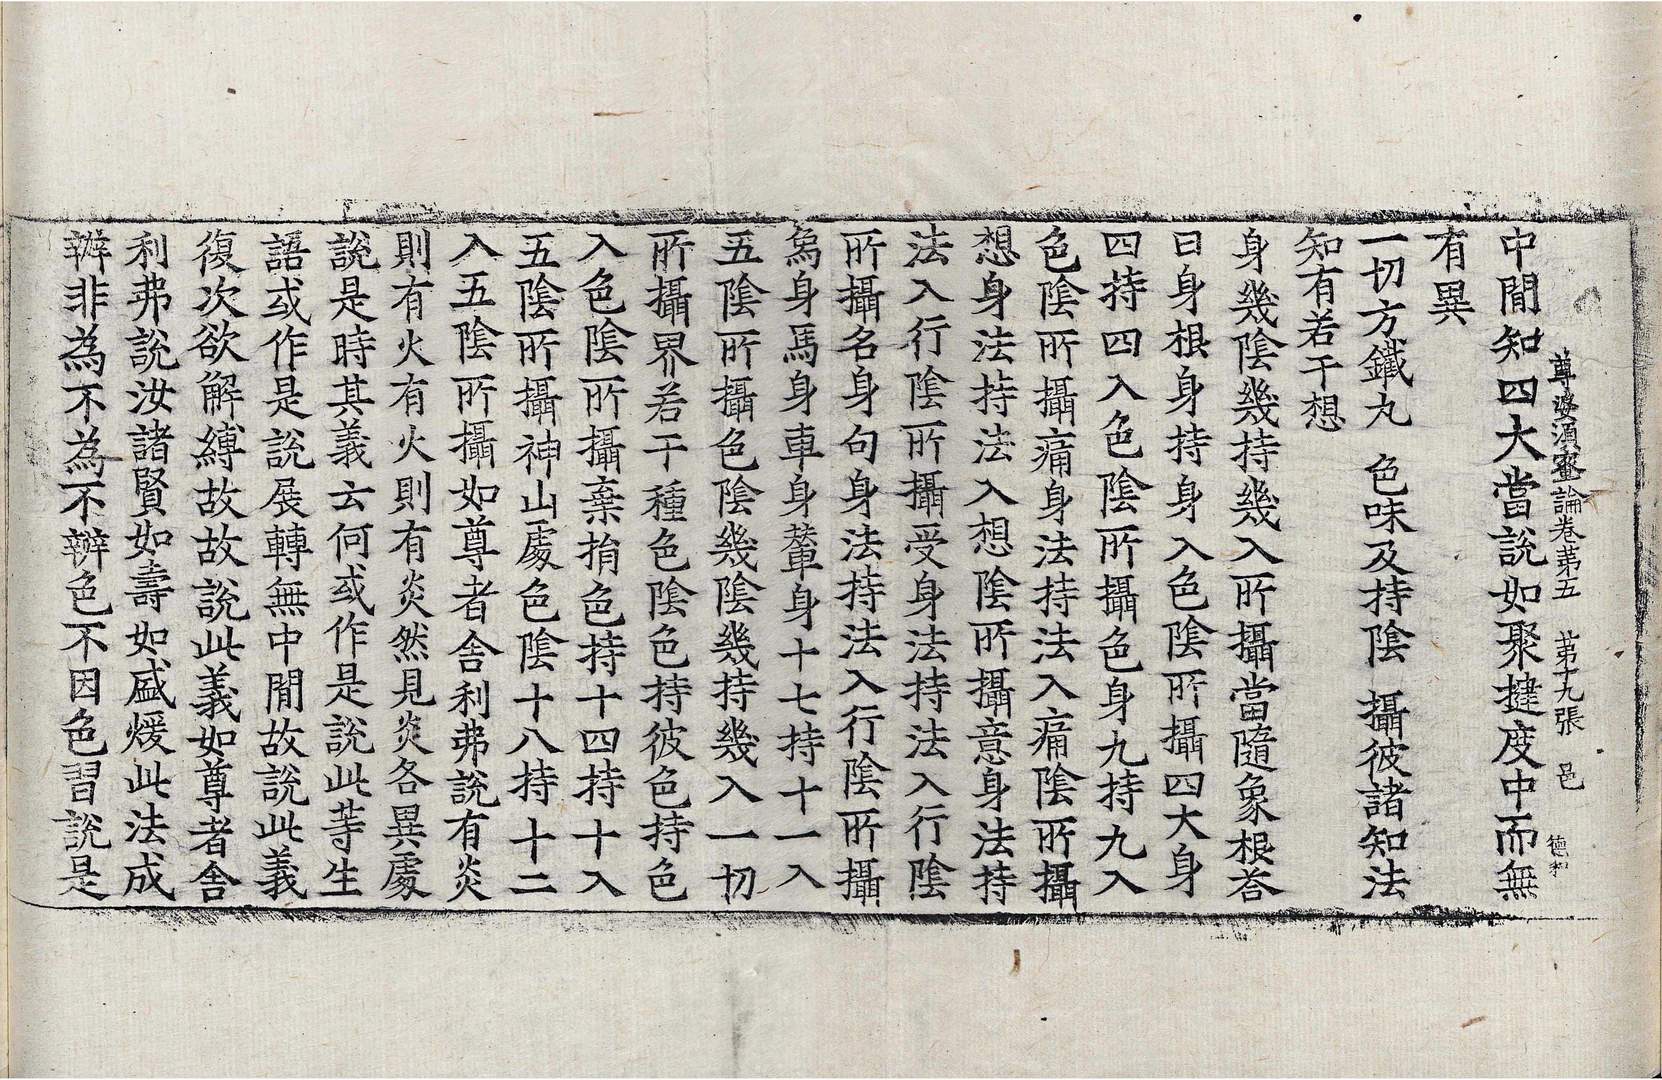 尊婆須蜜論卷第五 第十九張 邑 德和
中閒知四大當說如聚揵度中而無
有異
一切方鐵丸 色味及持陰 攝彼諸知法
知有若干想
身幾陰幾持幾入所攝當隨象根荅
曰身根身持身入色陰所攝四大身
四持四入色陰所攝色身九持九入
色陰所攝痛身法持法入痛陰所攝
想身法持法入想陰所攝意身法持
法入行陰所攝受身法持法入行陰
所攝名身句身法持法入行陰所攝
爲身馬身車身輦身十七持十一入
五陰所攝色陰幾陰幾持幾入一切
所攝界若干種色陰色持彼色持色
入色陰所攝棄捐色持十四持十入
五陰所攝神山處色陰十八持十二
入五陰所攝如尊者舍利弗說有炎
則有火有火則有炎然見炎各異處
說是時其義云何或作是說此等生
語或作是說展轉無中閒故說此義
復次欲解縛故故說此義如尊者舍
利弗說汝諸賢如壽如盛煖此法成
辦非為不為不辦色不因色習說是